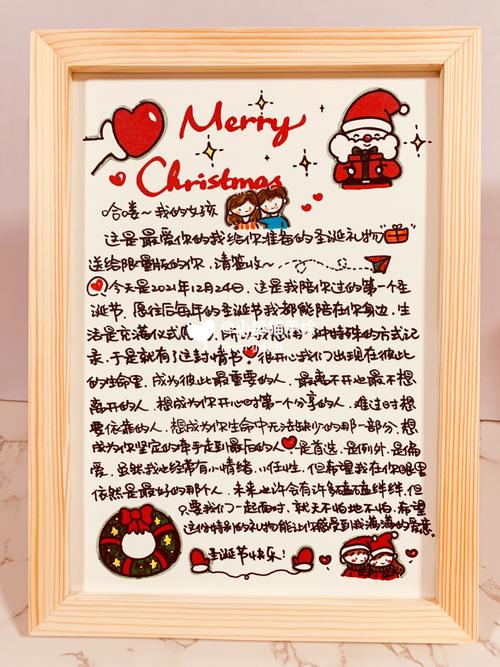 Merry
Christmas
哈喽~我的女孩
这是最爱你的我给你准备的圣诞礼物
送给限量版的你，请签收~
今天是2021年12月24日，这是我陪你过的第一个圣
诞节，愿往后每年的圣诞节我都能陪在你身边，生
活是充满仪式，所以我想借一种特殊的方式记
录，于是就有了这封情书。很开心我们出现在彼此
的生命里，成为彼此最重要的人，最离不开也最不想
离开的人，想成为你开心时第一个分享的人，难过时想
要依靠的人，想成为你生命中无法缺少的那一部分，想
成为你坚定的牵手走到最后的人，是首选，是例外，是偏
爱，虽然我也经常有小情绪，小任性，但希望我在你眼里
依然是最好的那个人，未来也许会有许多磕磕绊绊，但
只要我们一起面对，就天不怕地不怕，希望
这份特别的礼物能让你感受到我满满的爱意。
圣诞节快乐！